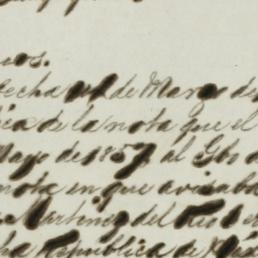 nos.
fecha de Marzo de
de la nota que el
Mayo de 1857 al Gbo de
nota en que avisaba
Martinez del Rio
República de